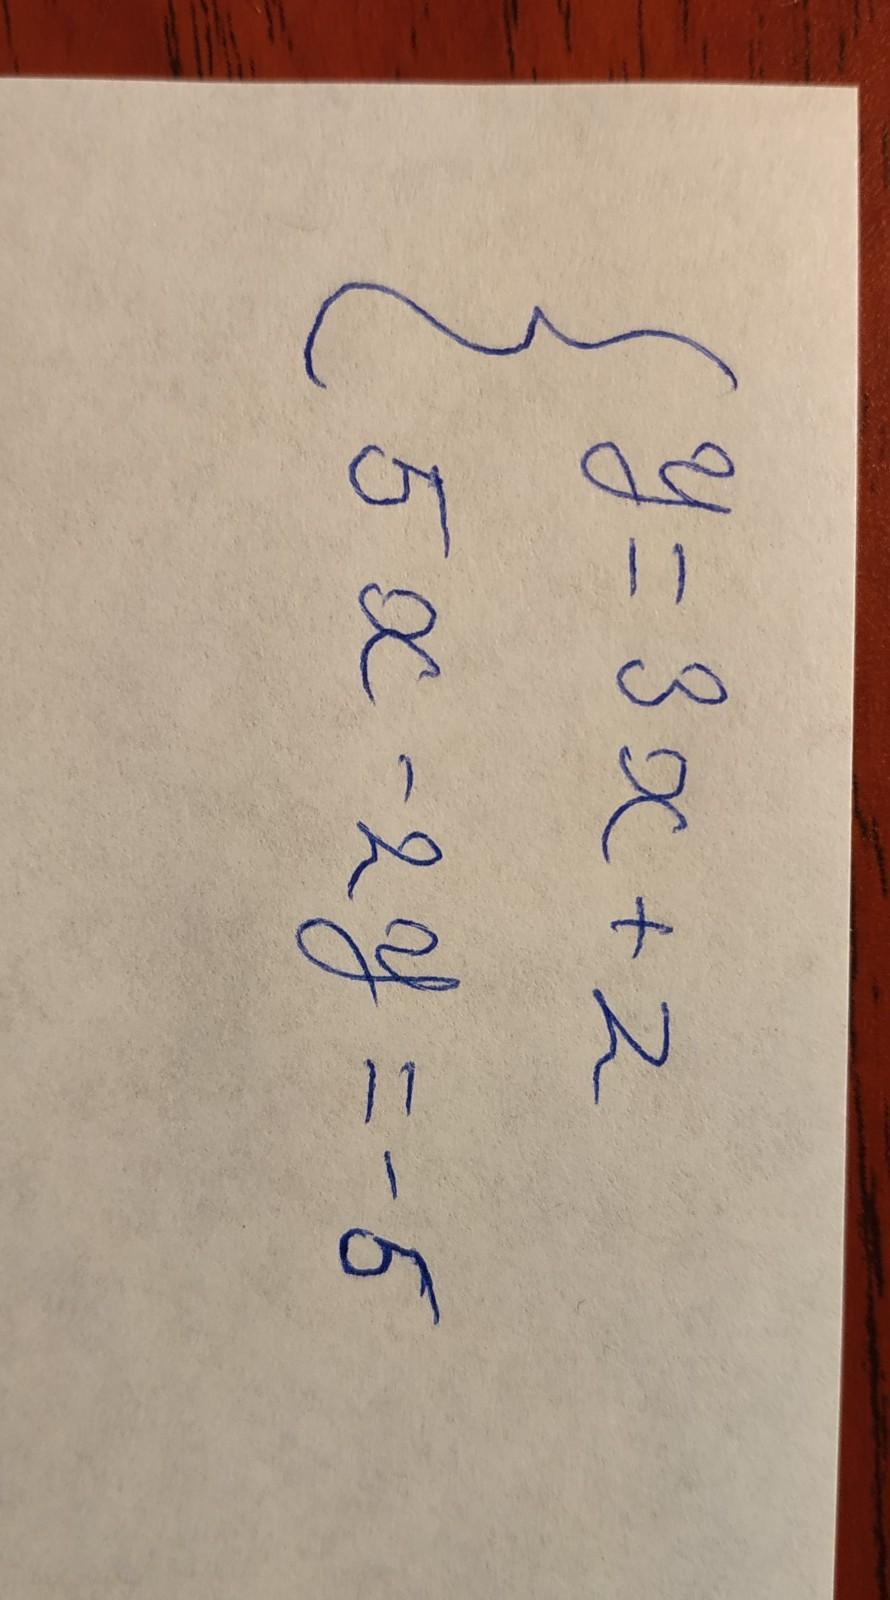 y = 3x + 2
5x - 2y = -5